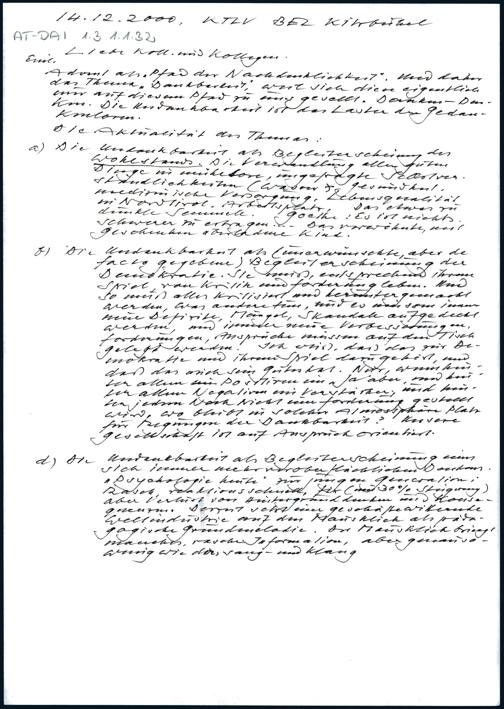 14.12.2000, KTLV BEZ Kitzbühel
AT-DAI 1.3.1.1.132
Liebe Koll. und Kollegen.
Einl.
Advent als „Pfad der Nachdenklichkeit". Und daher
das Thema „Dankbarkeit", weil sich diese eigentlich
nur auf diesem Pfad zu uns gesellt. Danken – Den-
ken. Die Undankbarkeit ist das Laster der Gedan-
kenlosen.
Die Aktualität des Themas:
a) Die Undankbarkeit als Begleiterscheinung des
Wohlstands. Die Verwandlung aller guten
Dinge in mühelose, ungefragte Selbstver-
ständlichkeiten (Wasser, Gesundheit,
medizinische Versorgung, Lebensqualität
in Nordtirol, Arbeitsplatz, Das etwas zu
dunkle Semmele. Goethe: Es ist nichts
schwerer zu ertragen ... Das verwöhnte, mit
Geschenken überladene Kind.
b) Die Undankbarkeit als (unerwünschte, aber de
facto gegebene) Begleiterscheinung der
Demokratie. Sie muß, entsprechend ihrem
Spiel, von Kritik und Forderung leben. Und
so muß alles kritisiert und heruntergemacht
werden, was andere tun, und es müssen immer
neue Defizite, Mängel, Skandale aufgedeckt
werden, und immer neue Verbesserungen,
Forderungen, Ansprüche müssen auf den Tisch
gelegt werden. Ich weiß, daß das zur De-
mokratie und ihrem Spiel dazugehört, und
daß das auch sein Gutes hat. Nur, wenn hin-
ter allem Positiven ein „Ja aber", und hin-
ter allem Negativen ein Verstärker, und hin-
ter jedem Noch Nicht eine Forderung gestellt
wird, wo bleibt in solcher Atmosphäre Platz
für Regungen der Dankbarkeit? Unsere
Gesellschaft ist auf Anspruch orientiert.
d) Die Undankbarkeit als Begleiterscheinung eines
sich immer mehr veroberflächlichenden Denkens.
„Psychologie heute" zur jungen Generation:
Rasch, reaktionsschnell, (um 30% Steigerung)
aber Verlust von Hintergrunddenken und Konse-
quenzen. Derzeit setzt eine geschäftewitternde
Weltindustrie auf den Mausklick als päda-
gogische Grundmelodie. Der Mausklick bringt
manches, rasche Information, aber genauso
wenig wie der Sang- und Klang